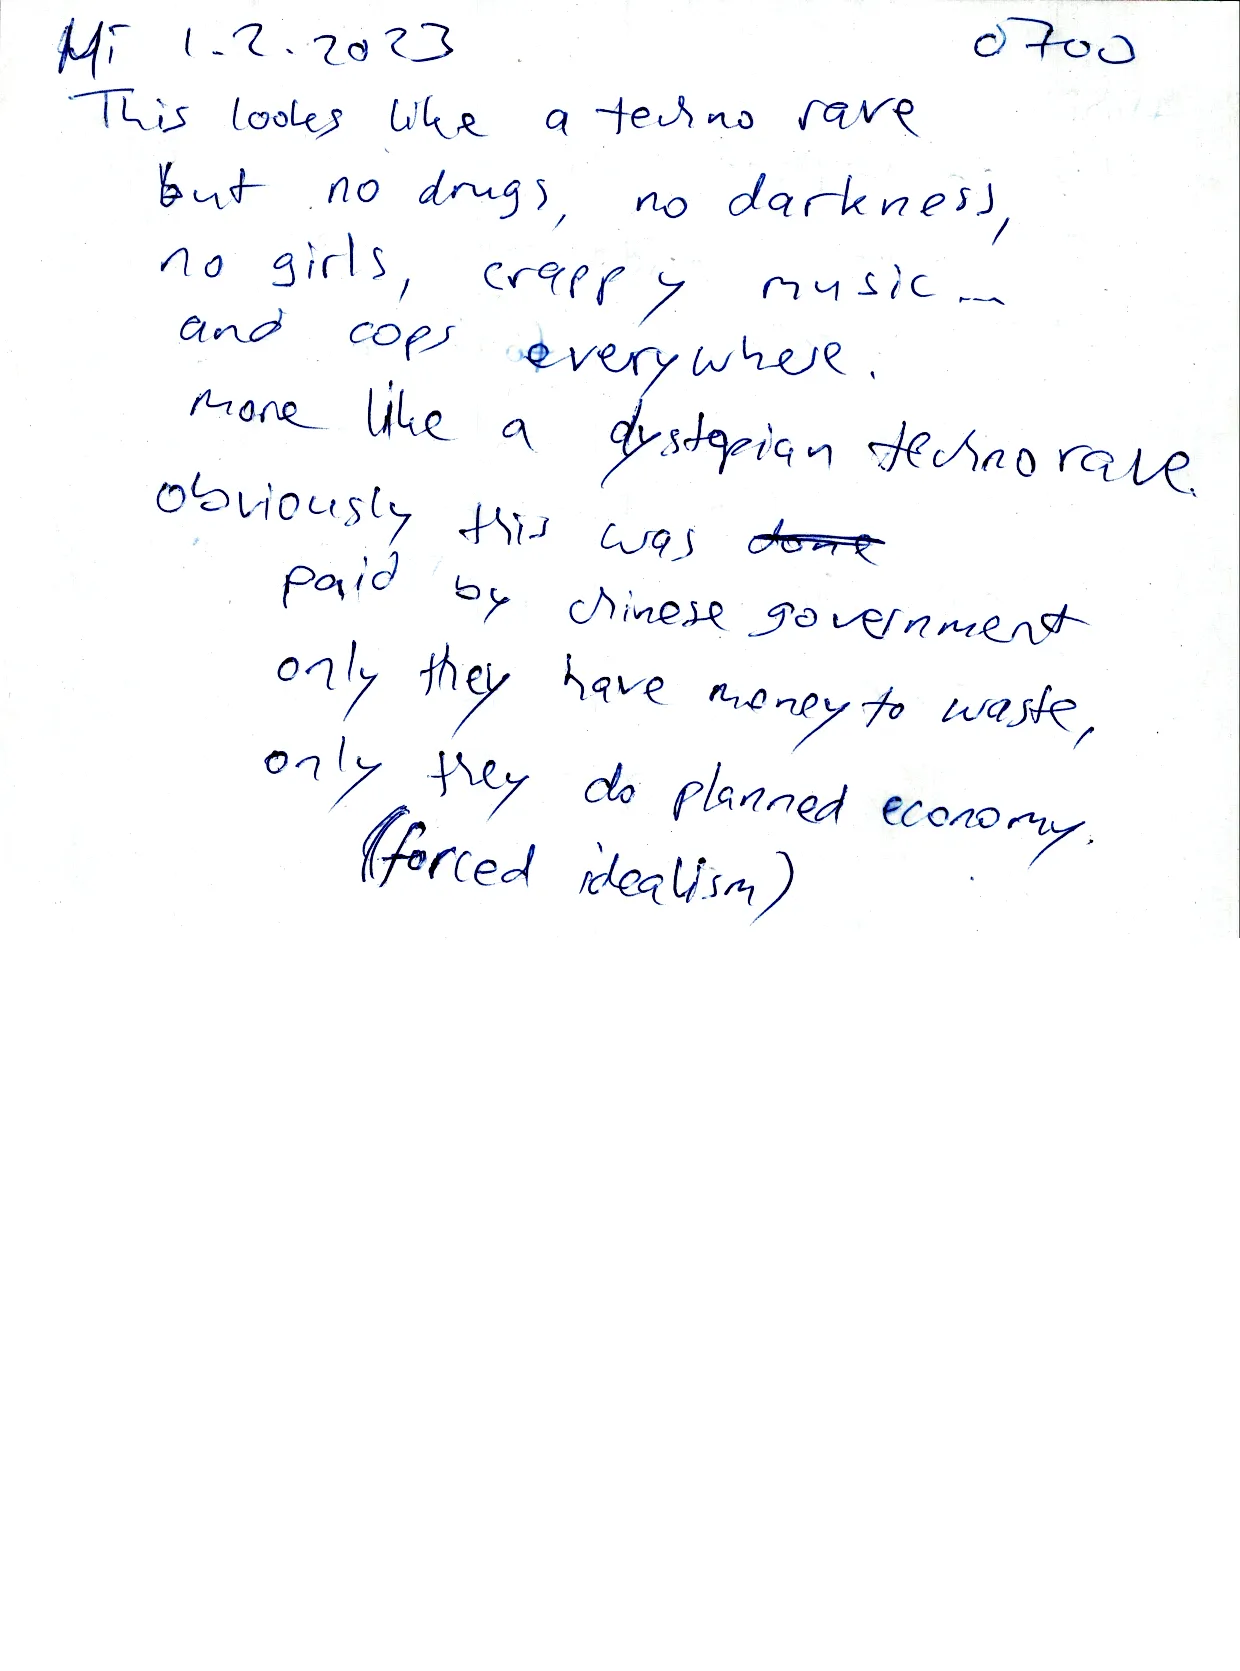 Mi 1.2.2023 0700
This looks like a techno rave
but no drugs, no darkness,
no girls, crappy music...
and cops everywhere.
more like a dystopian techno rave.
obviously this was done
paid by chinese government
only they have money to waste,
only they do planned economy.
(forced idealism)